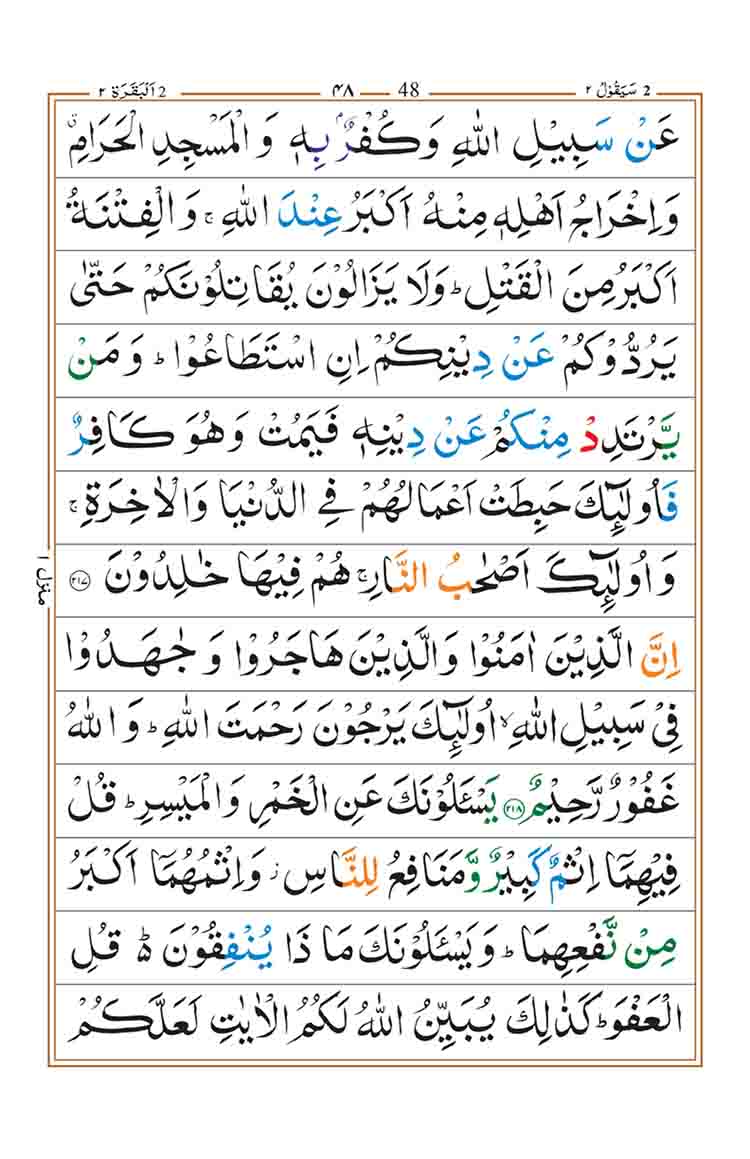 2 سَيَقُوۡلُ ٢ 48 ۴۸ 2 اَلۡبَقَرَة ٢
عَنۡ سَبِيۡلِ اللّٰهِ وَ كُفۡرٌۢ بِهٖ وَ الۡمَسۡجِدِ الۡحَرَامِۙ
وَ اِخۡرَاجُ اَهۡلِهٖ مِنۡهُ اَكۡبَرُ عِنۡدَ اللّٰهِۚ وَ الۡفِتۡنَةُ
اَكۡبَرُ مِنَ الۡقَتۡلِؕ وَلَا يَزَالُوۡنَ يُقَاتِلُوۡنَكُمۡ حَتّٰى
يَرُدُّوۡكُمۡ عَنۡ دِيۡنِكُمۡ اِنِ اسۡتَطَاعُوۡاؕ وَ مَنۡ
يَّرۡتَدِدۡ مِنۡكُمۡ عَنۡ دِيۡنِهٖ فَيَمُتۡ وَ هُوَ كَافِرٌ
فَاُولٰٓئِكَ حَبِطَتۡ اَعۡمَالُهُمۡ فِى الدُّنۡيَا وَ الۡاٰخِرَةِۚ
وَ اُولٰٓئِكَ اَصۡحٰبُ النَّارِۚ هُمۡ فِيۡهَا خٰلِدُوۡنَ ۝٢١٧
اِنَّ الَّذِيۡنَ اٰمَنُوۡا وَ الَّذِيۡنَ هَاجَرُوۡا وَ جٰهَدُوۡا
فِىۡ سَبِيۡلِ اللّٰهِۙ اُولٰٓئِكَ يَرۡجُوۡنَ رَحۡمَتَ اللّٰهِؕ وَ اللّٰهُ
غَفُوۡرٌ رَّحِيۡمٌ ۝٢١٨ يَسۡـَٔلُوۡنَكَ عَنِ الۡخَمۡرِ وَ الۡمَيۡسِرِؕ قُلۡ
فِيۡهِمَاۤ اِثۡمٌ كَبِيۡرٌ وَّ مَنَافِعُ لِلنَّاسِؗ وَ اِثۡمُهُمَاۤ اَكۡبَرُ
مِنۡ نَّفۡعِهِمَاؕ وَ يَسۡـَٔلُوۡنَكَ مَا ذَا يُنۡفِقُوۡنَ ؕ قُلِ
الۡعَفۡوَؕ كَذٰلِكَ يُبَيِّنُ اللّٰهُ لَكُمُ الۡاٰيٰتِ لَعَلَّكُمۡ
منزل ١